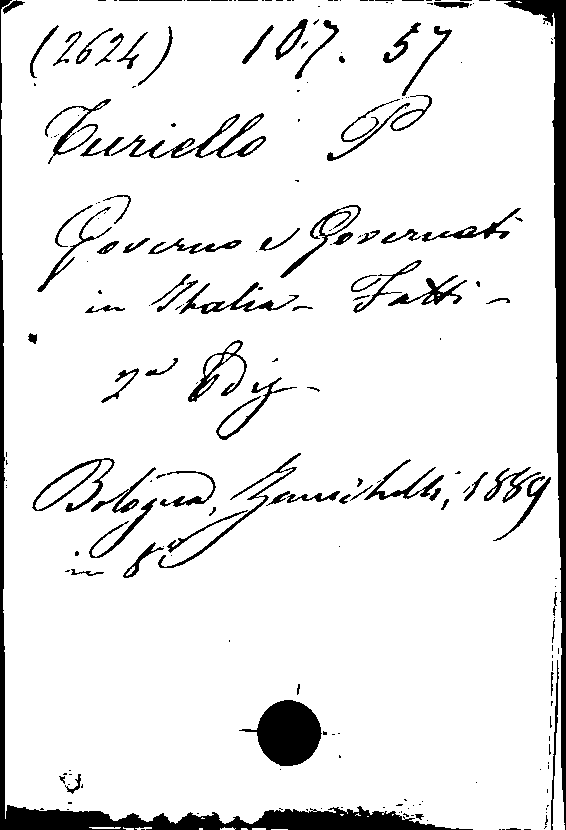 (2624) 107. 57
Turiello P
Governo e Governati
in Italia - Fatti -
2a Ediz
Bologna, Zanichelli, 1889
in 8o